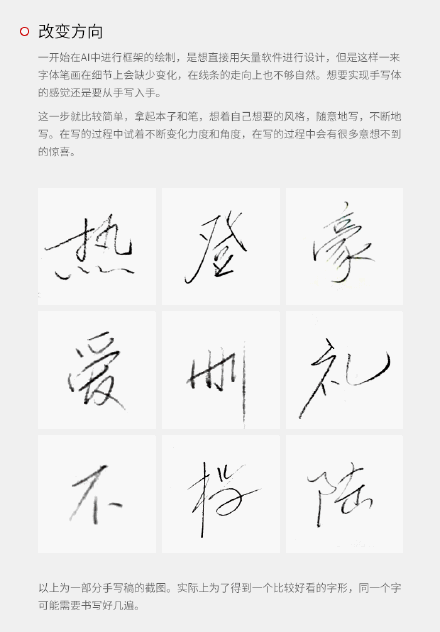 改变方向
一开始在AI中进行框架的绘制，是想直接用矢量软件进行设计，但是这样一来
字体笔画在细节上会缺少变化，在线条的走向上也不够自然。想要实现手写体
的感觉还是要从手写入手。
这一步就比较简单，拿起本子和笔，想着自己想要的风格，随意地写，不断地
写。在写的过程中试着不断变化力度和角度，在写的过程中会有很多意想不到
的惊喜。
热 登 豪
爱 删 礼
不 投 陆
以上为一部分手写稿的截图。实际上为了得到一个比较好看的字形，同一个字
可能需要书写好几遍。